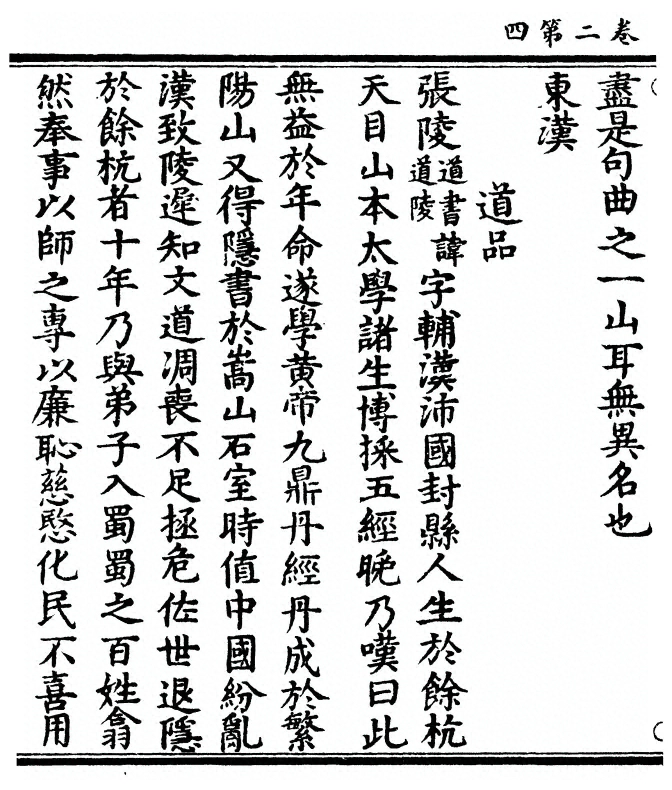 卷二第四
盡是句曲之一山耳無異名也
東漢
道品
張陵道書諱道陵字輔漢沛國封縣人生於餘杭
天目山本太學諸生博採五經晚乃嘆曰此
無益於年命遂學黄帝九鼎丹經丹成於繁
陽山又得隱書於嵩山石室時值中國紛亂
漢致陵遲知文道凋喪不足拯危佐世退隱
於餘杭者十年乃與弟子入蜀蜀之百姓翕
然奉事以師之專以廉恥慈愍化民不喜用